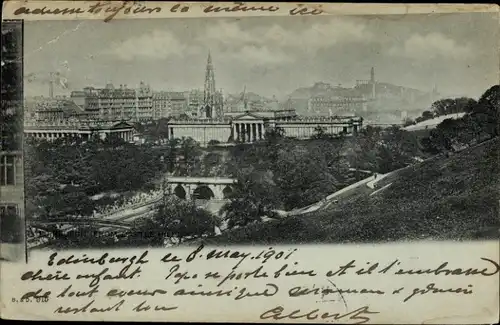 adresse toujours la même ici
Edinburgh le 8 May 1901
chère enfant Papa se porte bien et il t'embrasse
de tout cœur ainsi que maman & 
restant ton
Albert